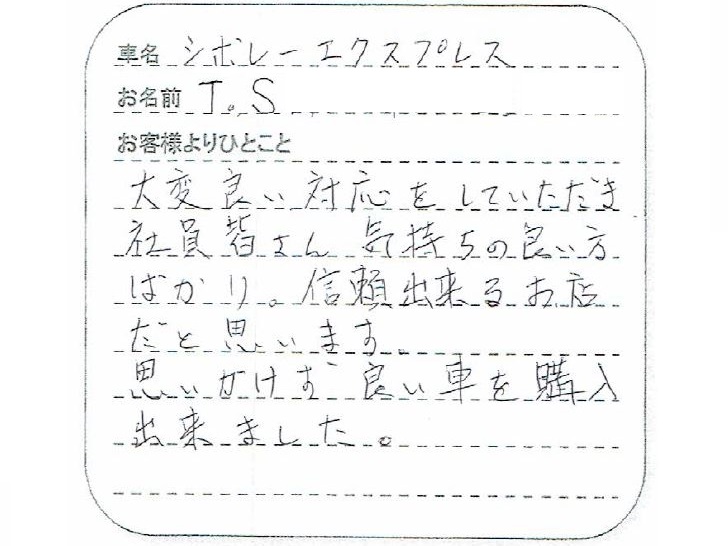 車名 シボレーエクスプレス
お名前 T.S
お客様よりひとこと
大変良い対応をしていただき
社員皆さん気持ちの良い方
ばかり。信頼出来るお店
だと思います。
思いがけず良い車を購入
出来ました。